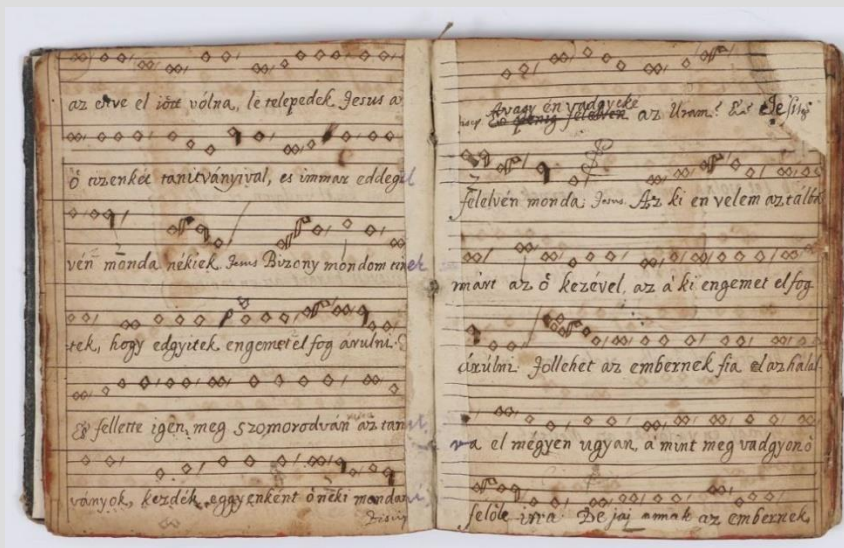 az estve el jött vólna, le telepedék Jesus a
ő tizenkét tanitványival, es immar eddegél
vén monda nékiek Jesus Bizony mondom tinek
tek, hogy edgyitek engemet el fog arulni.
fellette igen meg szomorodván az tanit
ványok, kezdék eggyenként ő néki mondani
Avagy én vadgyoke az Uram?
felelvén monda: Jesus. Az ki en velem az tálba
márt az ő kezével, az á ki engemet el fog
árúlni. Jollehet az embernek fia el az halál
ra el mégyen ugyan, á mint meg vadgyon ő
felöle irva De jaj annak az embernek,